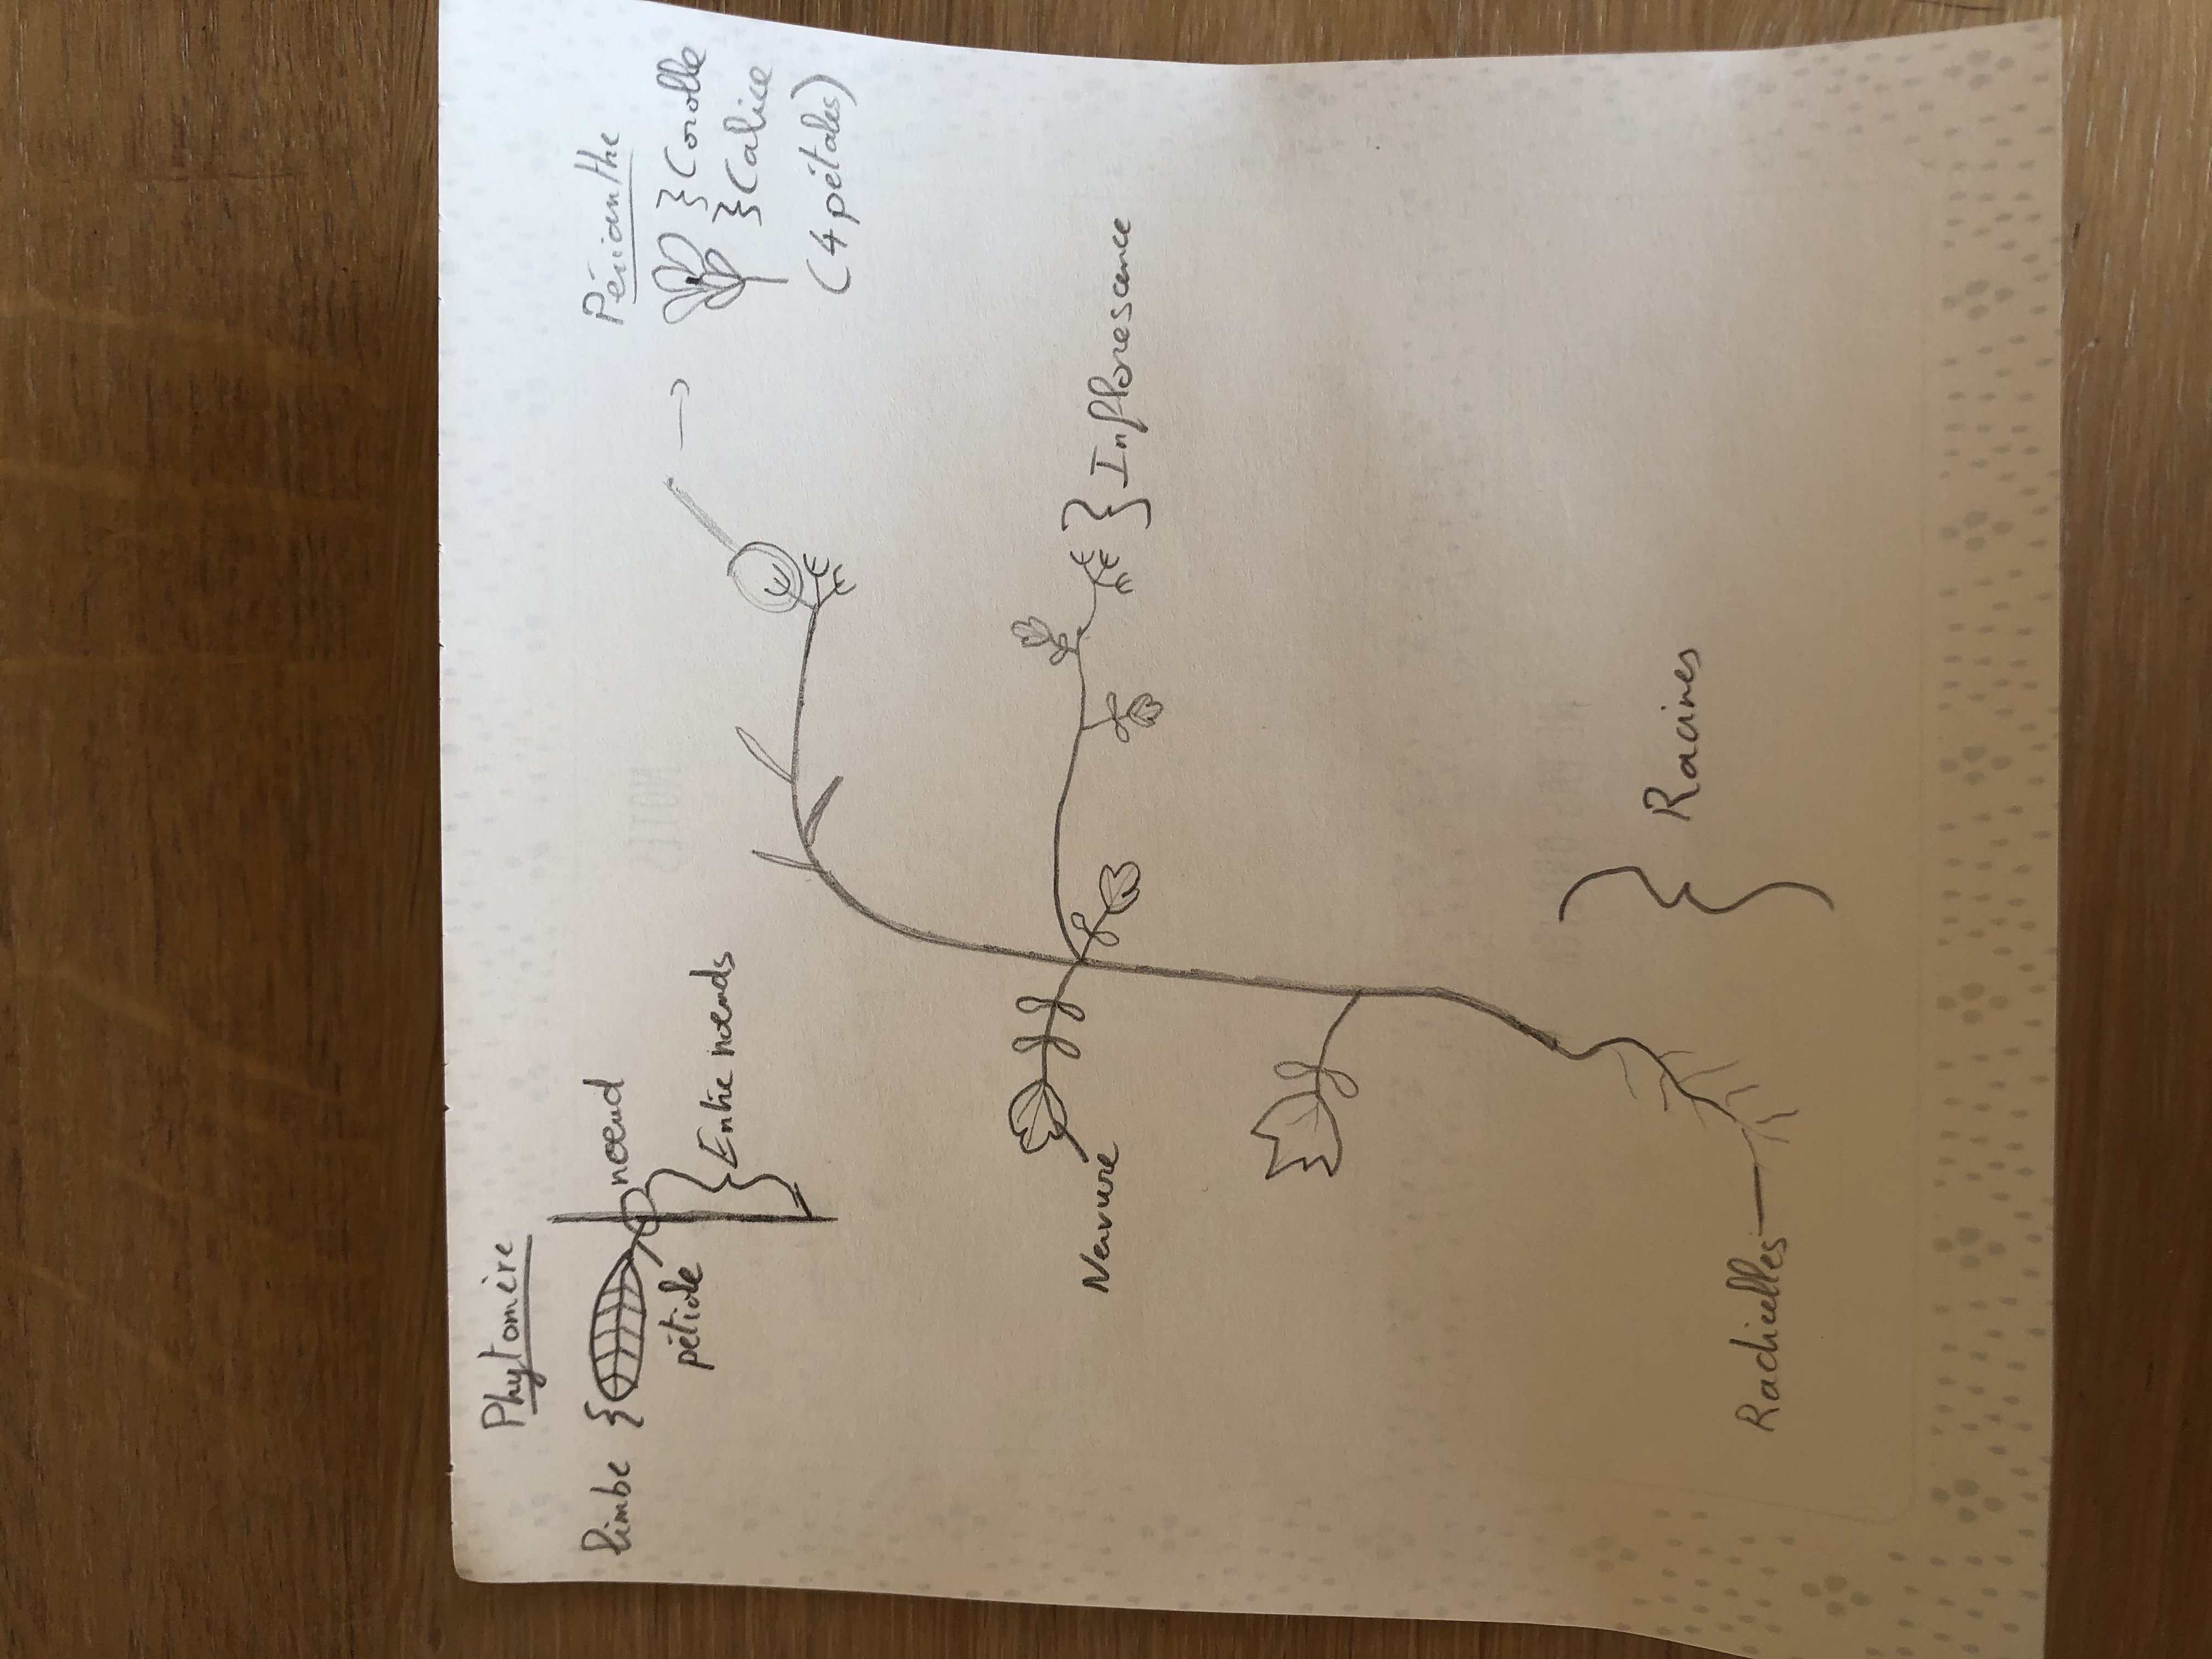 Phytomère
limbe
noeud
pétiole
Entre nœuds
Périanthe
Corolle
Calice
(4 pétales)
Nervure
Inflorescence
Racines
Radicelles